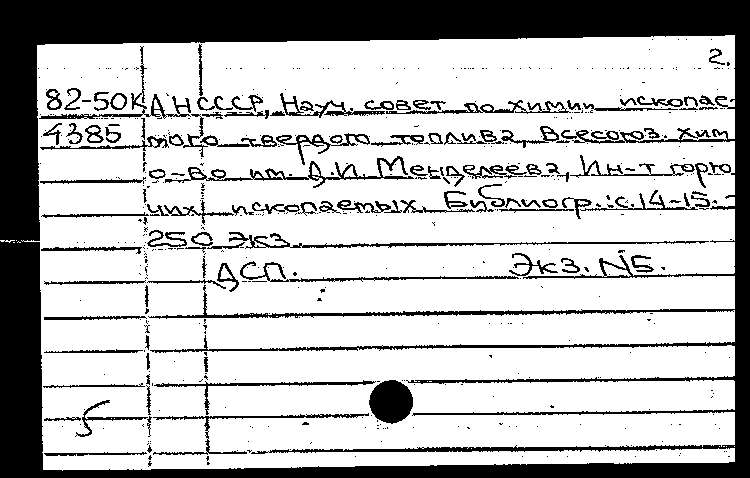 2.
82-50К АН СССР, Науч. совет по химии ископае-
4385 мого твердого топлива, Всесоюз. хим
о-во им. Д.И. Менделеева, Ин-т горю
чих ископаемых. Библиогр.: с. 14-15. -
250 экз.
ДСП. Экз. №Б.
5